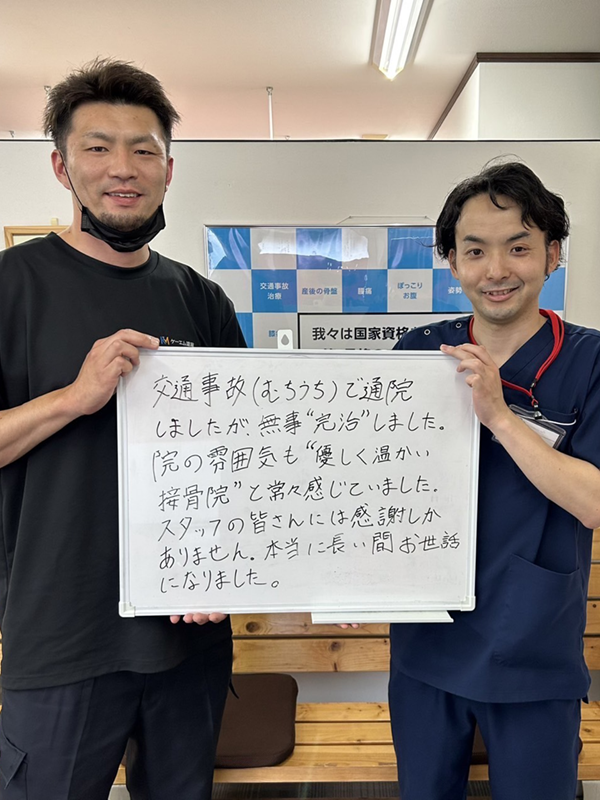 交通事故
治療
産後の骨盤
腰痛
ぽっこり
お腹
姿勢
膝
我々は国家資格
ケーエム建築
交通事故(むちうち)で通院
しましたが、無事“完治”しました。
院の雰囲気も“優しく温かい
接骨院”と常々感じていました。
スタッフの皆さんには感謝しか
ありません。本当に長い間お世話
になりました。